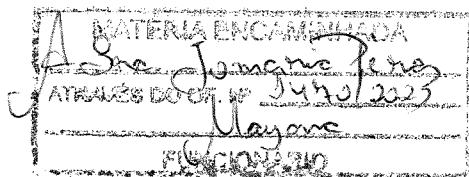 MATERIA ENCAMINHADA
A Sra. Tomaria Peres
ATRAVÉS DO OF. Nº 2025
Mayane
FUNCIONARIO